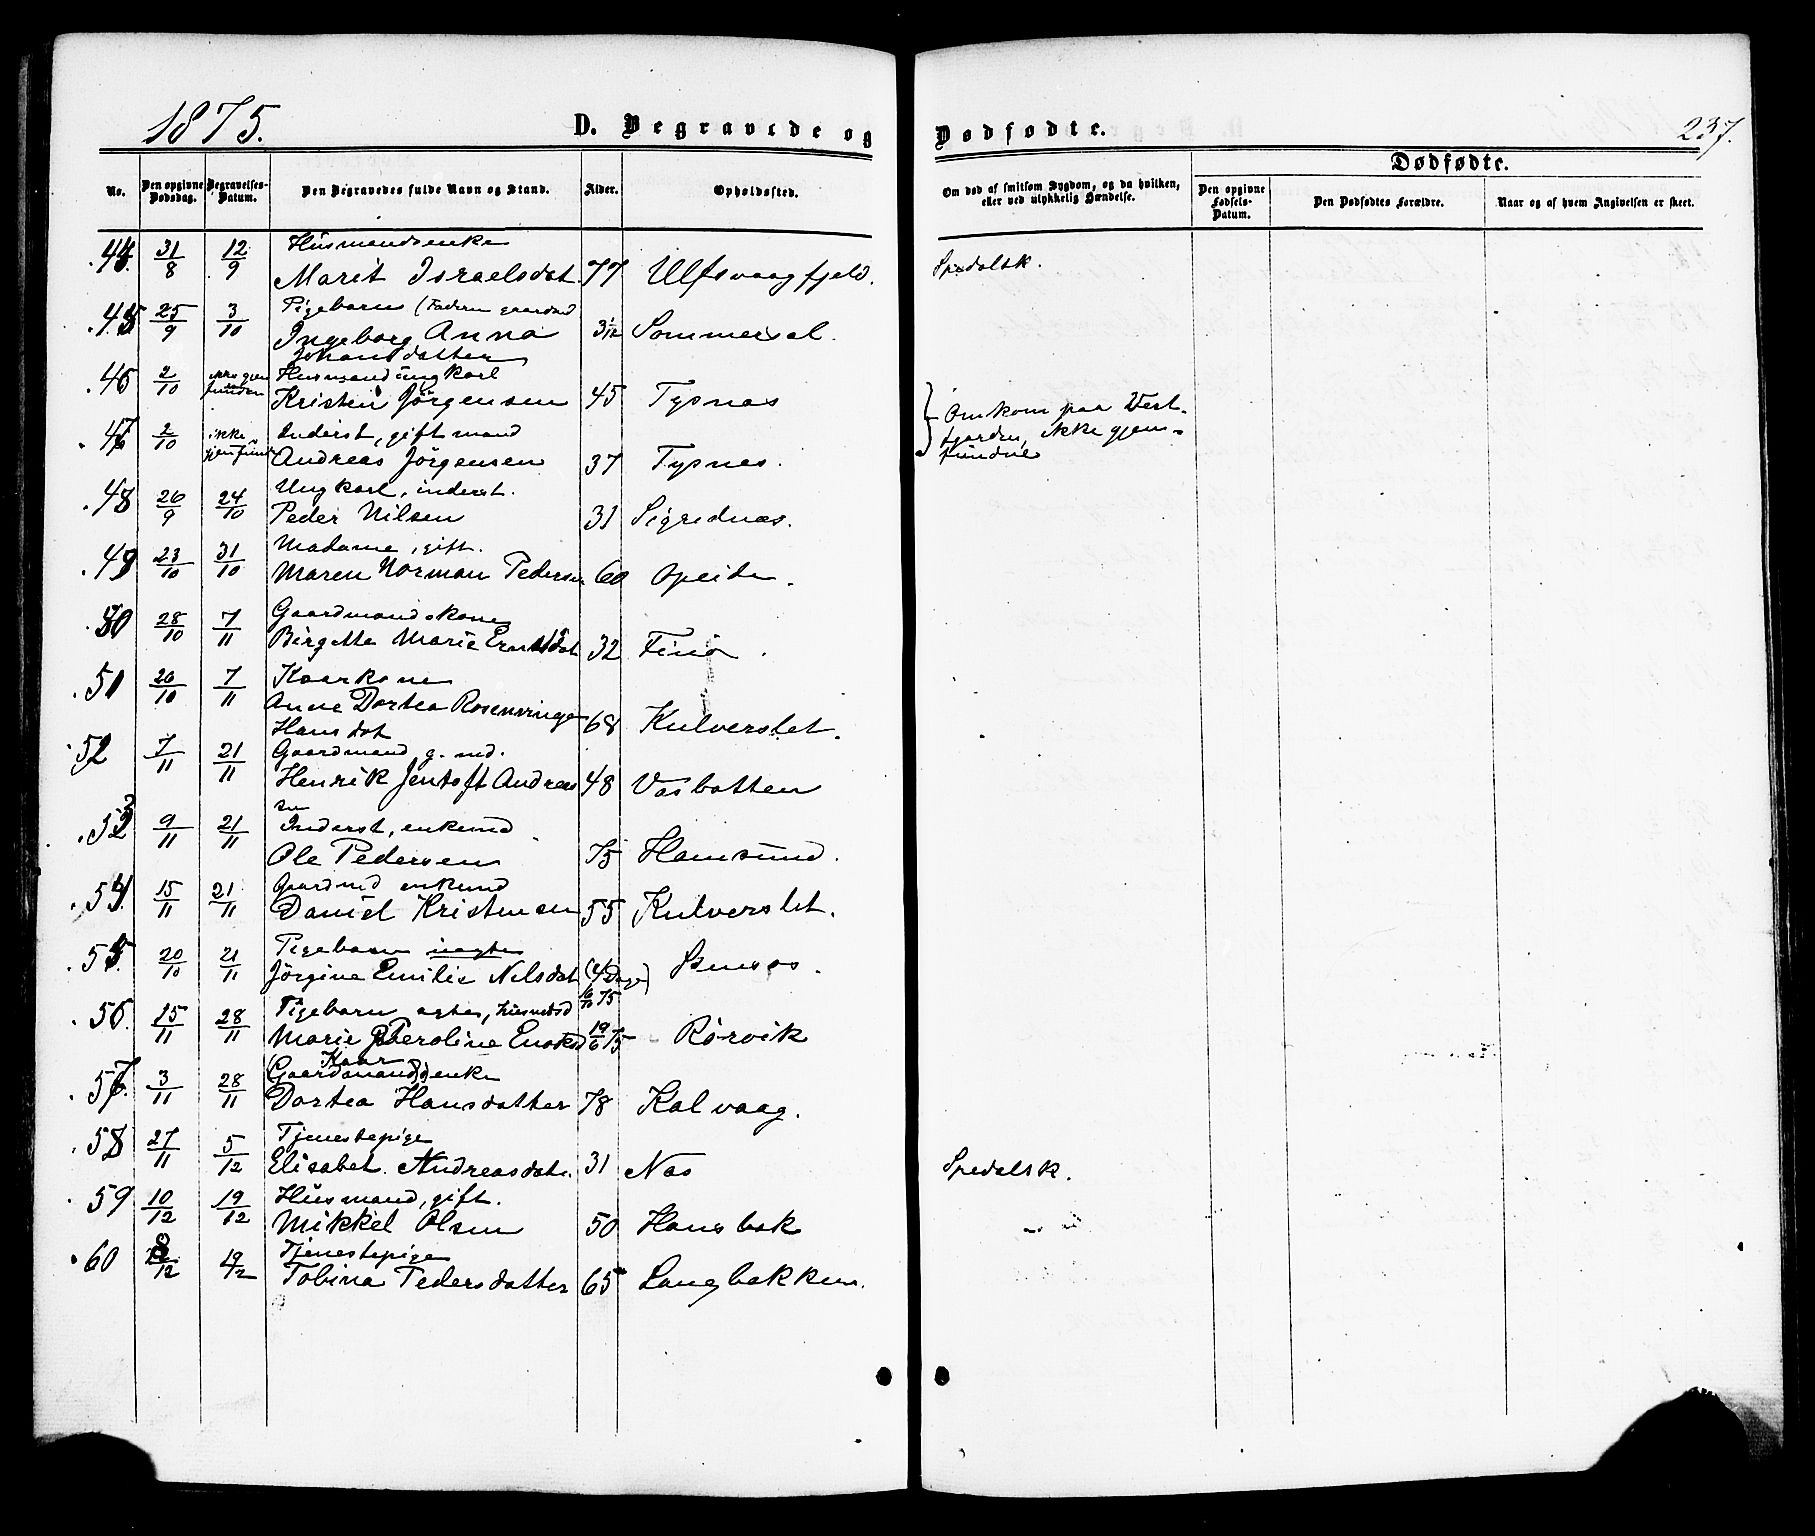 1875.
D. Begravede og
Dødfødte.
237.
No.
Den opgivne Dødsdag.
Begravelses-Datum.
Den Begravedes fulde Navn og Stand.
Alder.
Opholdssted.
Om død af smitsom Sygdom, og da hvilken, eller ved ulykkelig Hændelse.
Dødfødte.
Den opgivne Fødsels-Datum.
Den Dødfødtes Forældre.
Naar og af hvem Angivelsen er skeet.
44. 31/8 12/9 Husmandsenke
Marit Israelsdat. 77 Ulfsvaagfjeld. Spedalsk.
45 25/9 3/10 Pigebarn (Faderen gaardmd
Ingeborg Anna Sommersel.
Johansdatter
46 2/10 ikke gjenfunden Husmand ungkarl
Kristen Jörgensen 45 Tysnas Omkom paa Vest-
47 2/10 ikke gjenfund Inderst, gift mand fjorden, ikke gjen-
Andreas Jörgensen 37 Tysnes. fundne
48 26/9 24/10 Ungkarl, inderst.
Peder Nilsen 31 Sigrednas.
49 23/10 31/10 Madame, gift.
Maren Norman Pedersen 60 Opeide.
50 28/10 7/11 Gaardmandskone
Birgitte Marie Ernstdat 32
51 26/10 7/11 Kaarkone
Anne Dortea Rosenvinge 68 Kulverslet.
Hansdat
52 7/11 21/11 Gaardmand g. md.
Henrik Jentoft Andreas 48 Vasbotten
sen
53 9/11 21/11 Inderst, enkemd
Ole Pedersen 75 Hamsund.
54. 15/11 21/11 Gaardmd enkemd
Daniel Kristensen 55 Kulverslet.
55. 20/10 21/11 Pigebarn uægte
Jörgine Emilie Nilsdat (4 Dage)
16/10 75
56. 15/11 28/11 Pigebarn ægte, husmdsd
Marie Peroline Enoksd 19/6 75 Rörvik
57. 3/11 28/11 Kaar
(Gaardmands) enke
Dortea Hansdatter 78 Kalvaag.
58 27/11 5/12 Tjenestepige
Elisabet Andreasdat. 31 Nas Spedalsk.
59 10/12 19/12 Husmand, gift.
Mikkel Olsen 50 Hansbak
60 Tjenestepige
Tobina Pedersdatter 65 Langbakken.